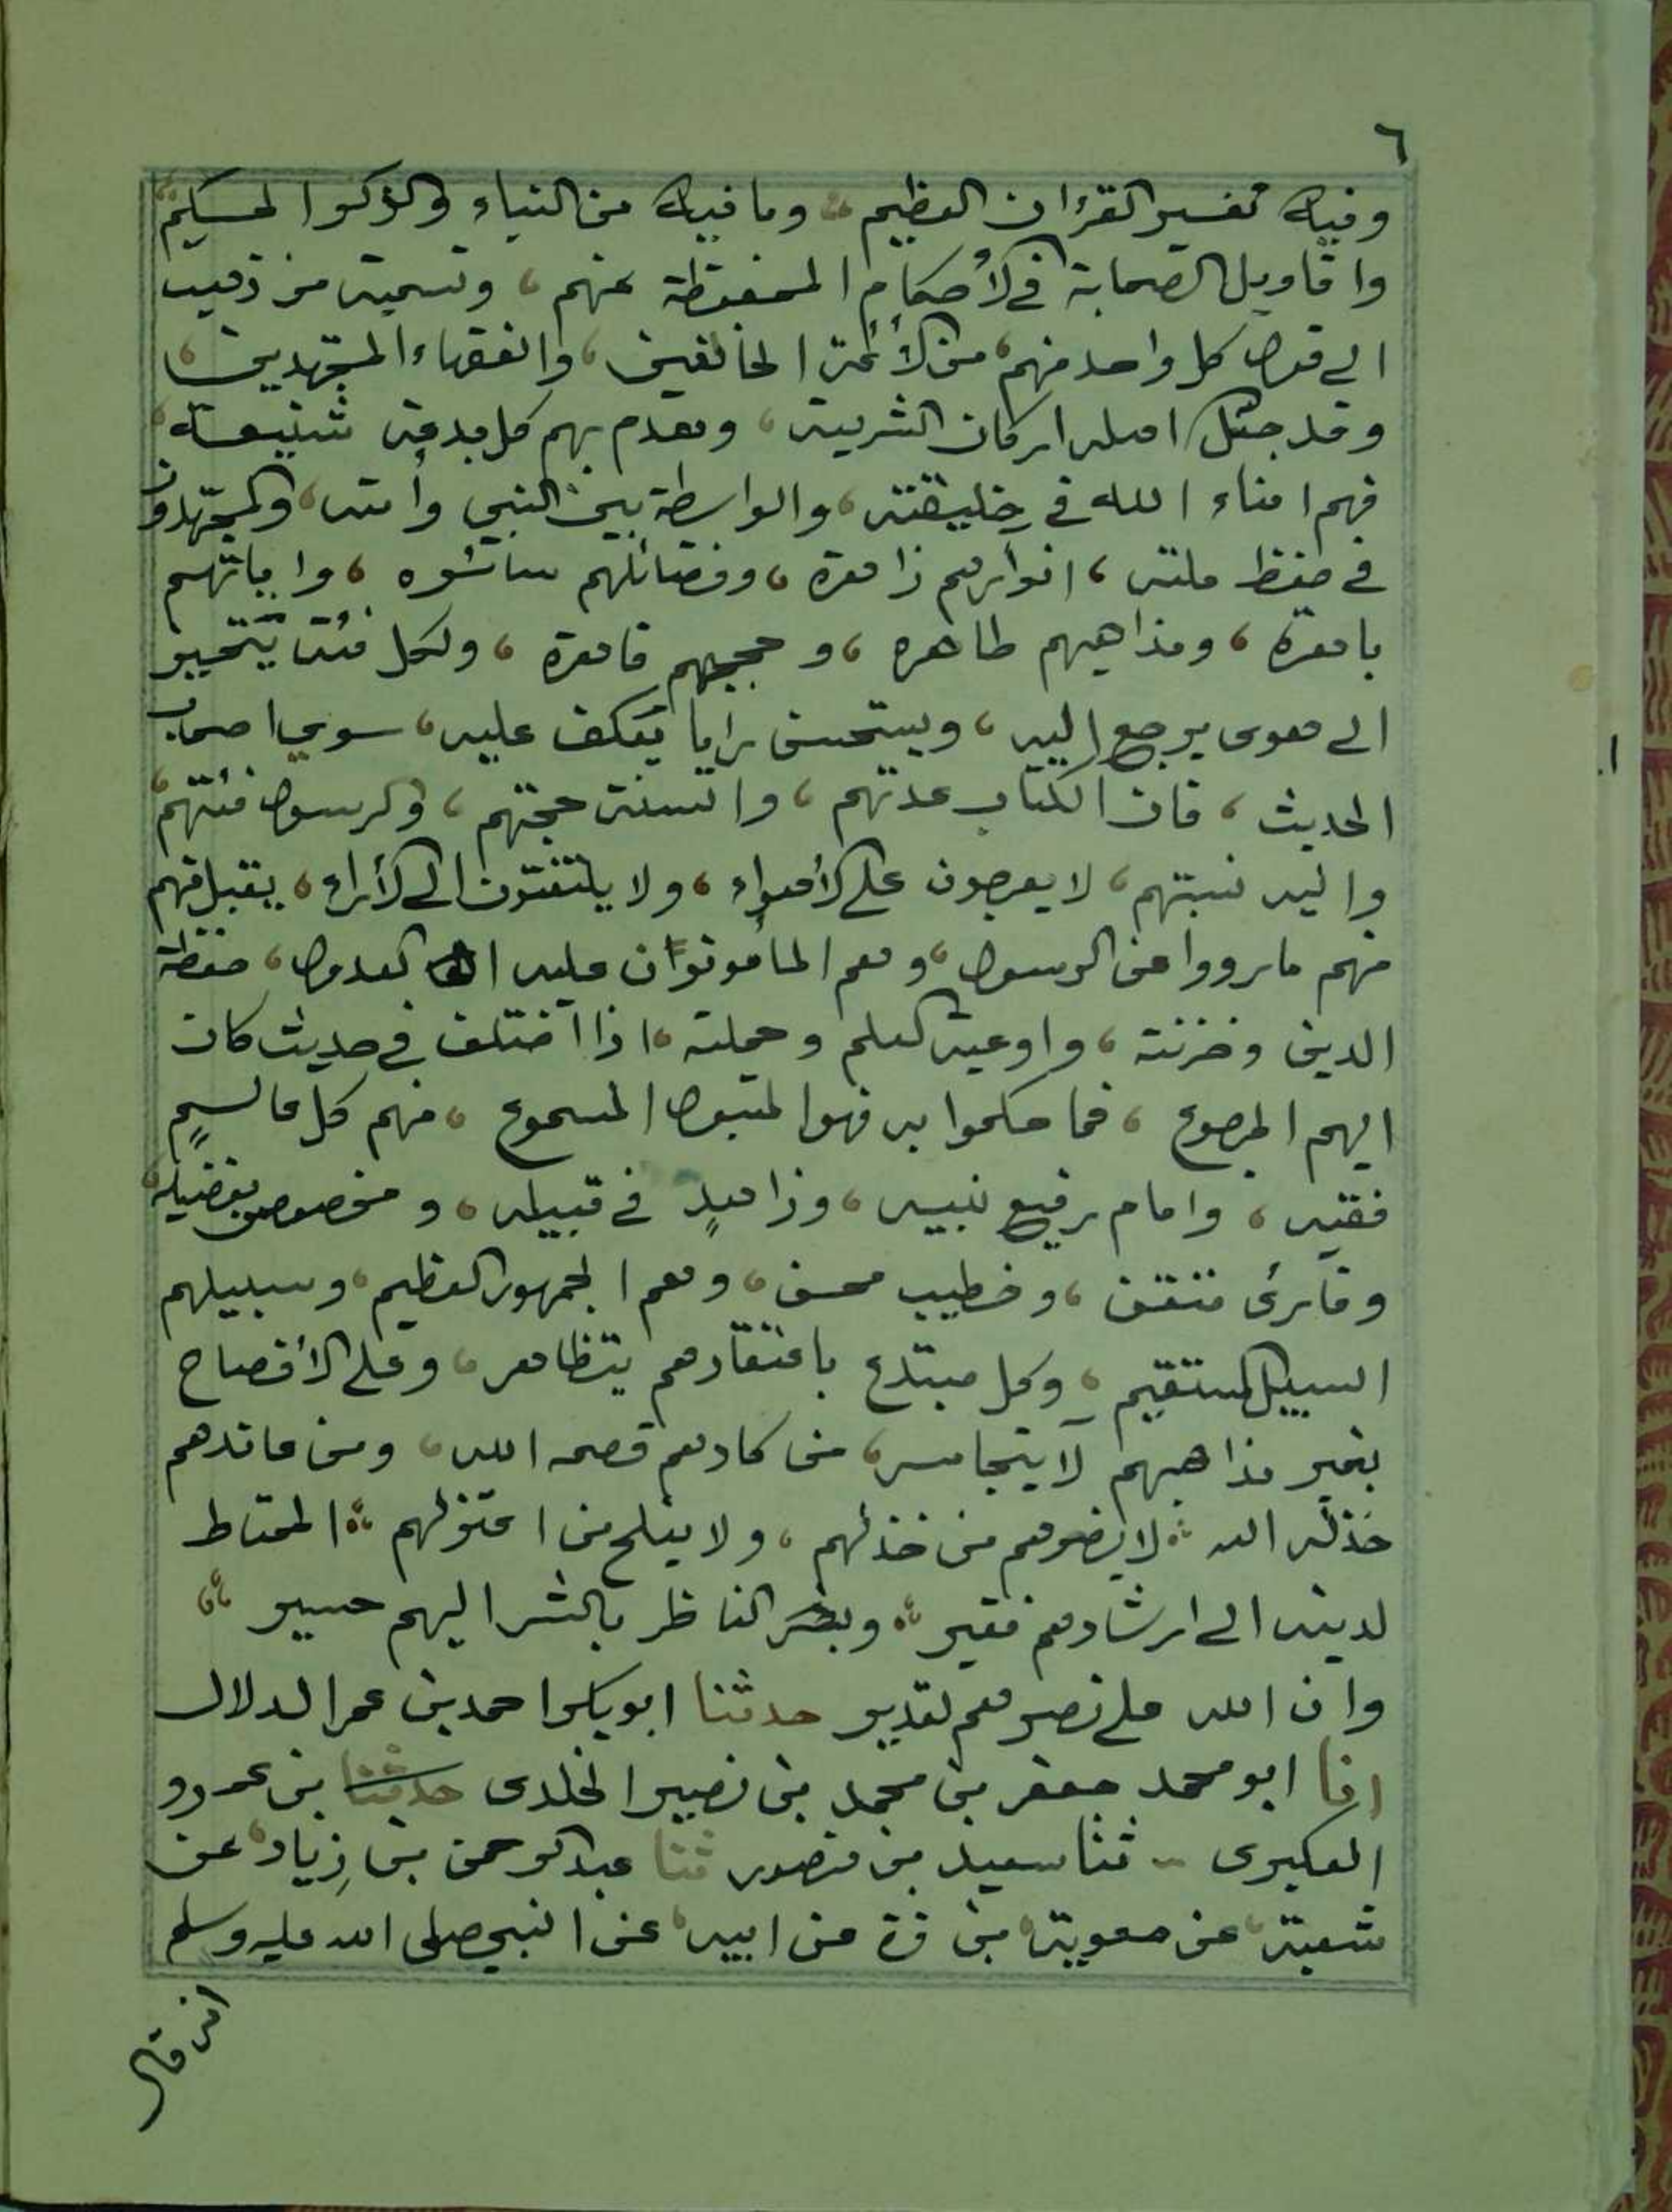 ٦
وفيه تفسير القرءان العظيم، وما فيه من النباء والذكر الحكيم
واقاويل الصحابة في الأحكام المحفوظة عنهم، وتسمية من ذهب
الى قول كل واحد منهم، من الأئمة الخالفين، والفقهاء المجتهدين،
وقد جعل اهله اركان الشريعة، وهدم بهم كل بدعة شنيعة،
فهم امناء الله في خليقته، والواسطة بين النبي وأمته، والمجتهدون
في حفظ ملته، انوارهم زاهرة، وفضائلهم سائره، واياتهم
باهرة، ومذاهبهم طاهره، وحججهم قاهرة، ولكل فئة تتحيز
الى هوى يرجع اليه، ويستحسن رايا يعكف عليه، سوى اصحاب
الحديث، فان الكتاب عدتهم، والسنة حجتهم، والرسول فئتهم،
واليه نسبتهم، لا يعرجون على الأهواء، ولا يلتفتون الى الأراء، يقبل منهم
منهم ما رووا عن الرسول، وهم المأمونون عليه العدول، حفظة
الدين وخزنته، واوعية العلم وحملته، اذا اختلف في حديث كان
اليهم المرجوع، فما حكموا به فهو المقبول المسموع، منهم كل عالمٍ
فقيه، وامام رفيع نبيه، وزاهدٍ في قبيله، ومخصوص بفضيله،
وقارئ متقن، وخطيب محسن، وهم الجمهور العظيم، وسبيلهم
السبيل المستقيم، وكل مبتدع باعتقادهم يتظاهر، وعلى الأفصاح
بغير مذاهبهم لا يتجاسر، من كادهم قصمه الله، ومن عاندهم
خذله الله، لا يضرهم من خذلهم، ولا يفلح من اعتزلهم، المحتاط
لدينه الى ارشادهم فقير، وبصر الناظر بالشر اليهم حسير
وان الله على نصرهم لقدير حدثنا ابو بكر احمد بن عمر الدلال
انا ابو محمد جعفر بن محمد بن نصير الخلدى حدثنا بن عمرو
العكبرى - ثنا سعيد بن منصور ثنا عبد الرحمن بن زياد، عن
شعبة، عن معوية، بن قرة عن ابيه، عن النبي صلى الله عليه وسلم
انه قال